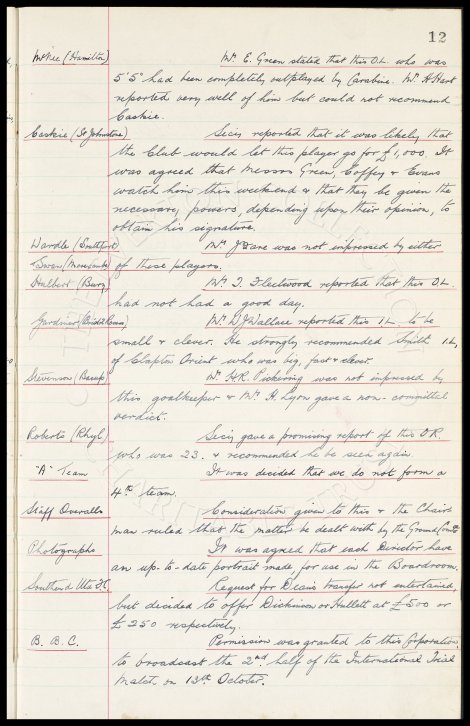 12
McNee (Hamilton) Mr. E. Green stated that this O.L. who was
5'5" had been completely outplayed by Carabine. Mr. A Hart
reported very well of him but could not recommend
Caskie.
Caskie (St Johnstone) Secy reported that it was likely that
the Club would let this player go for £1,000. It
was agreed that Messrs Green, Coffey & Evans
watch him this weekend & that they be given the
necessary powers, depending upon their opinion, to
obtain his signature.
Wardle (Southport) Mr. J Sare was not impressed by either
& Swan (Newcastle) of these players.
Hulbert (Bury) Mr. T. Fleetwood reported that this O.L.
had not had a good day.
Gardiner Mr. W J Wallace reported this I.L. to be
small & clever. He strongly recommended Smith I.L,
of Clapton Orient who was big, fast & clever.
Stevenson (Bacup) Mr. H.R. Pickering was not impressed by
this goalkeeper & Mr. A. Lyon gave a non-committal
verdict.
Roberts (Rhyl) Secy gave a promising report of this O.R.
who was 23. & recommended he be seen again.
"A" Team It was decided that we do not form a
4th team.
Staff Overalls Consideration given to this & the Chair-
man ruled that the matter be dealt with by the Ground Comtee
Photographs It was agreed that each Director have
an up-to-date portrait made, for use in the Boardroom.
Southend Utd FC Request for Dean's transfer not entertained,
but decided to offer Dickinson or Hullett at £500 or
£250 respectively.
B. B. C. Permission was granted to this Corporation
to broadcast the 2nd half of the International Trial
Match on 13th October.